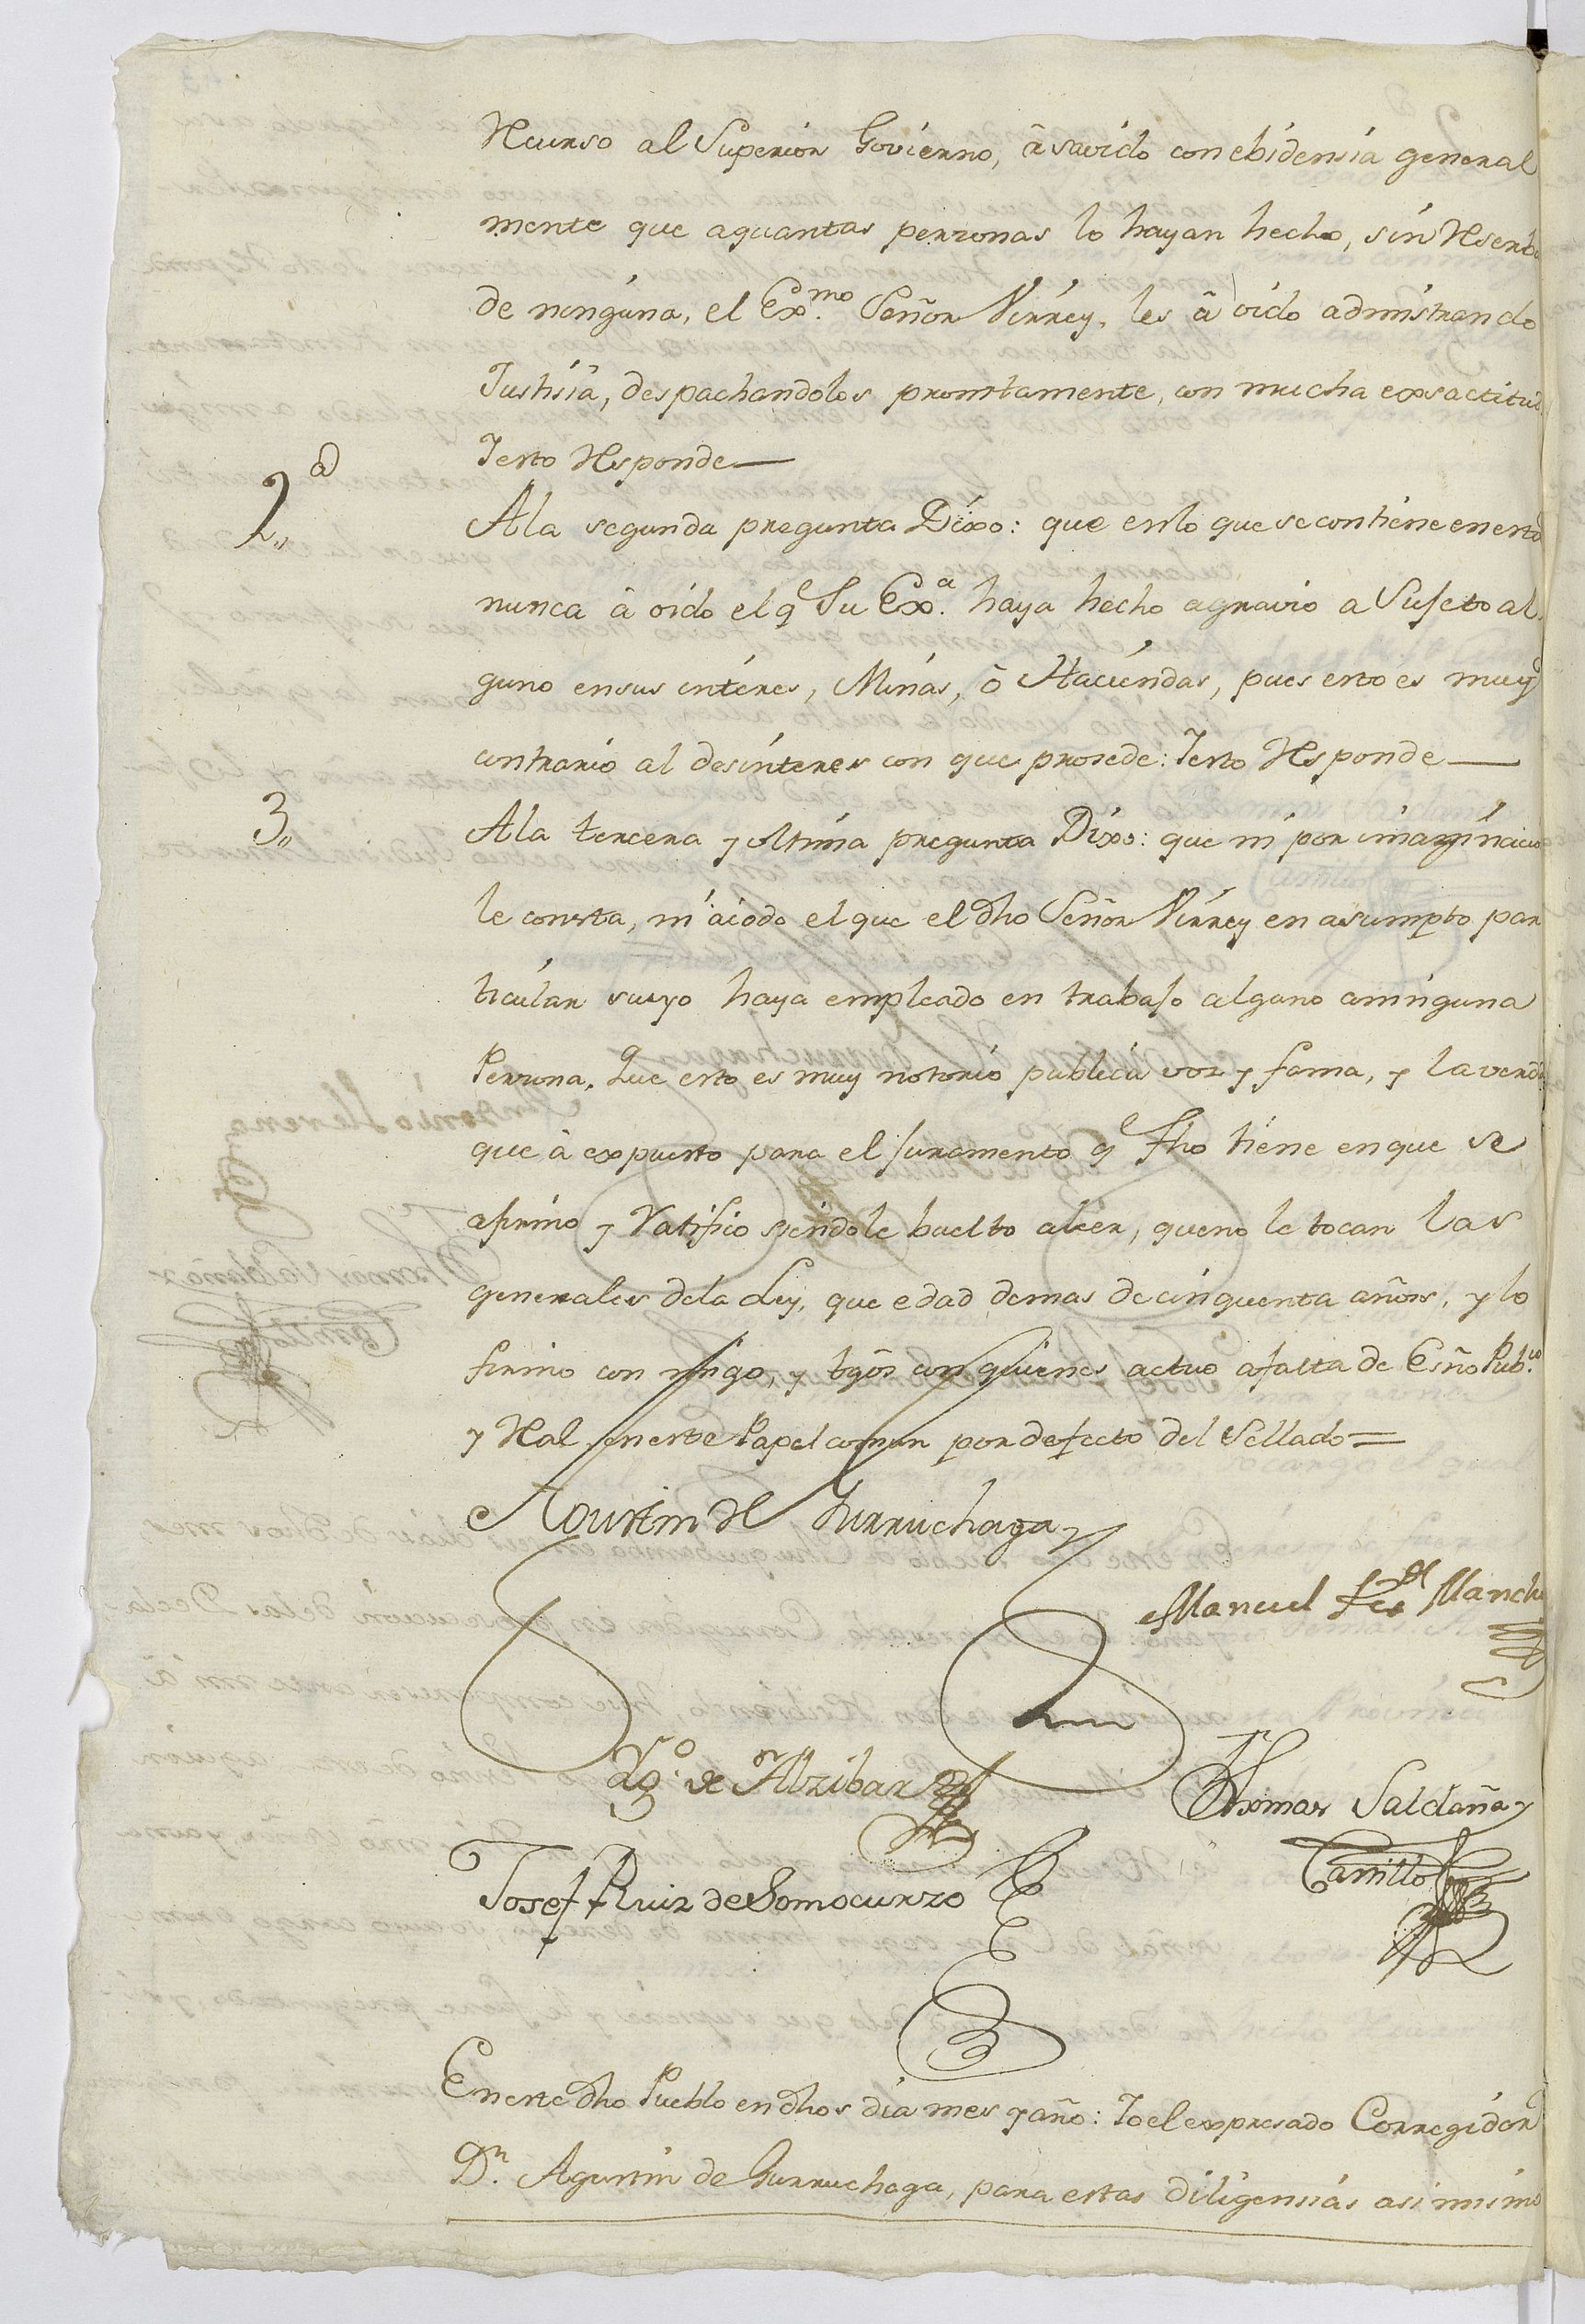 Recurso al Superior Govierno, â savido con ebidensia general
mente que aquantas perzonas lo hayan hecho, sin Reserba
de ninguna, el Exmo. Señor Virrey, les â oido admistrando
Justisia, despachandolos promtamente, con mucha exsactitud.
Iesto Responde—
2,,a
Ala segunda pregunta Dixo: que enlo que se contiene en esta
nunca â oido el qe Su Exa. haya hecho agravio a Sujeto al
guno ensus interes, Minas, ô Haciendas, pues esto es muy
contrario al desinteres con que prosede: Iesto Responde—
3,,
Ala tercera y ultima pregunta Dixo: que ni por imaginacion
le consta, ni aiodo el que el dho Señor Virrey en asumpto par
ticular suyo haya empleado en trabajo alguno aninguna
Perzona, Que esto es muy notorio publica voz y fama, y la verdd
que â expuesto para el juramento qe fho tiene enque se
afirmo y Ratifico siendole buelto aleer, queno le tocan las
generales dela Ley, que edad demas de cinquenta años, y lo
firmo con migo, y tgos con quienes actuo afalta de Esño Pubco.
y Real yenestePapel comun por defecto del Sellado=
Agustin de Gurruchaga
Manuel Frz de Mancha
Dgo. de Alzibar
Thomas Saldaña y
Carrillo
Josef Ruiz de Somocurzo
Eneste dho Pueblo en dhos dia mes y año: Io el expresado Corregidor
Dn. Agustin de Gurruchaga, para estas diligensias asimismo